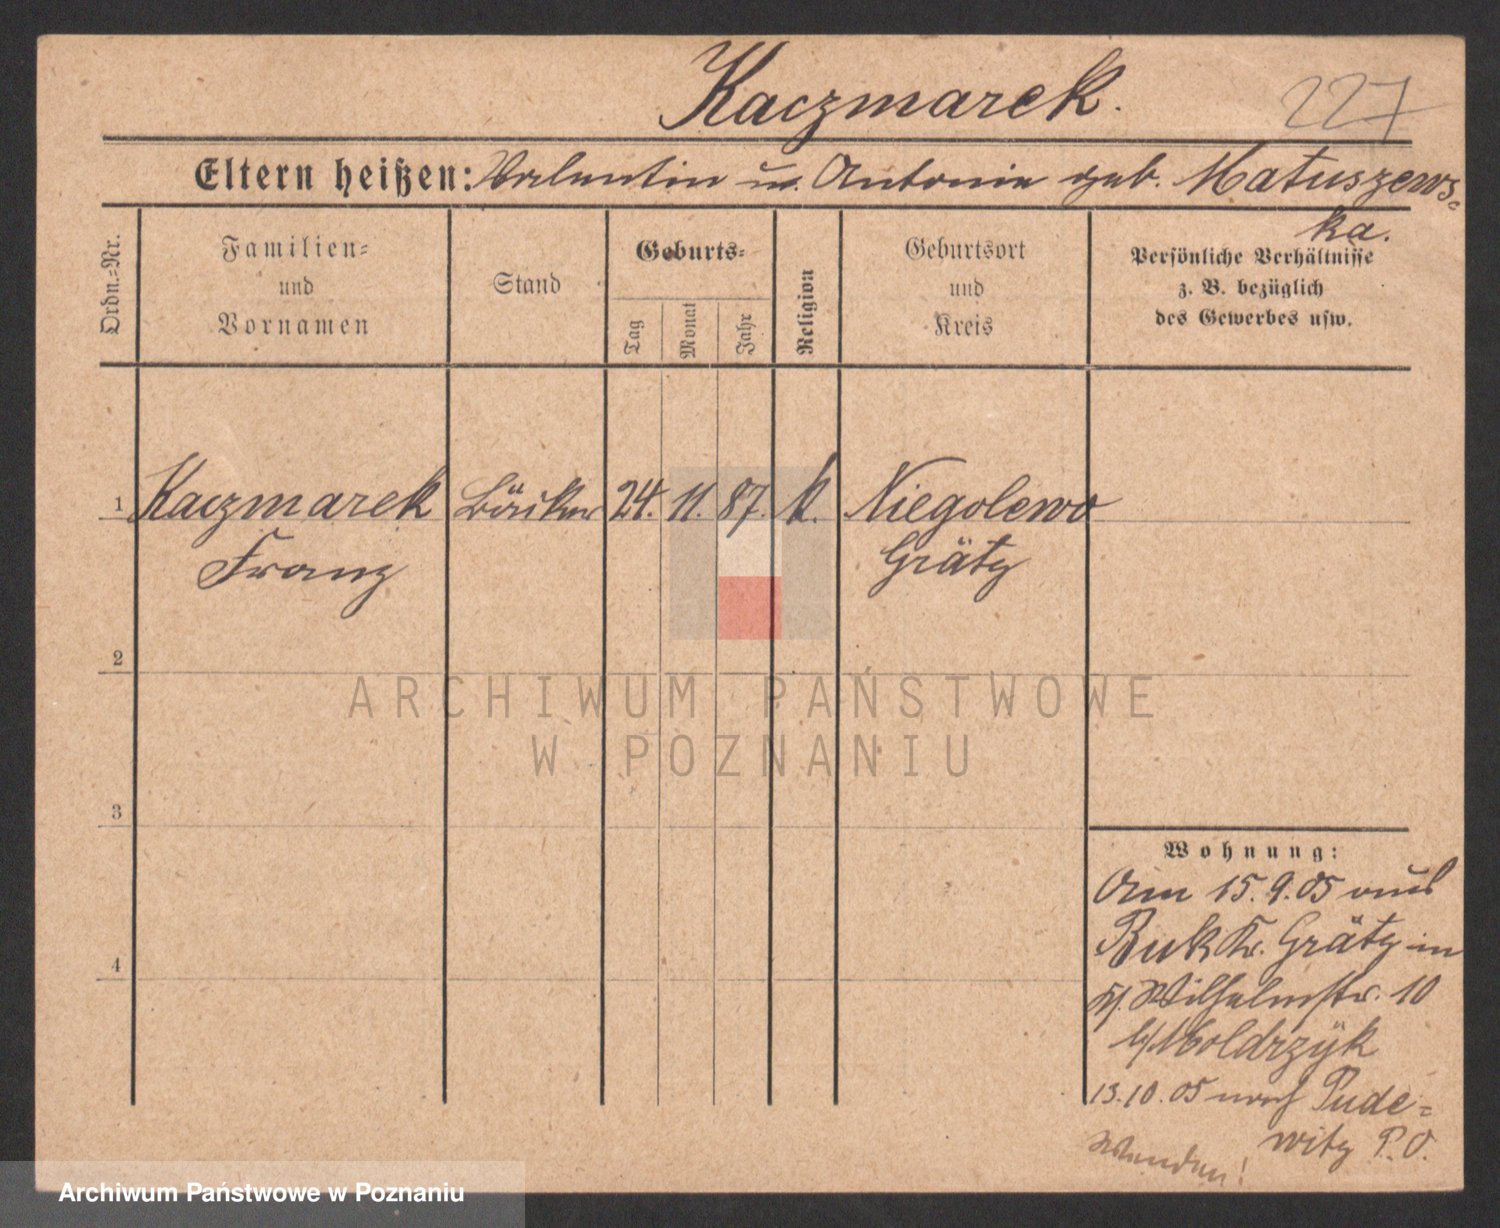 Kaczmarek. 227
Eltern heißen: Valentin u. Antonie geb. Matuszews-
ka.
Ordn.-Nr.
Familien-
und
Vornamen
Stand
Geburts-
Tag
Monat
Jahr
Religion
Geburtsort
und
Kreis
Persönliche Verhältnisse
z. B. bezüglich
des Gewerbes usw.
1 Kaczmarek Bäcker 24. 11. 87. k. Niegolewo
Franz Grätz
2
3
4
Wohnung:
Am 15.9.05 aus
Buk Kr. Grätz in
Wilhelmstr. 10
b/Moldrzyk
13.10.05 nach Pude-
witz P.O.
Wenden!
ARCHIWUM PAŃSTWOWE
W POZNANIU
Archiwum Państwowe w Poznaniu